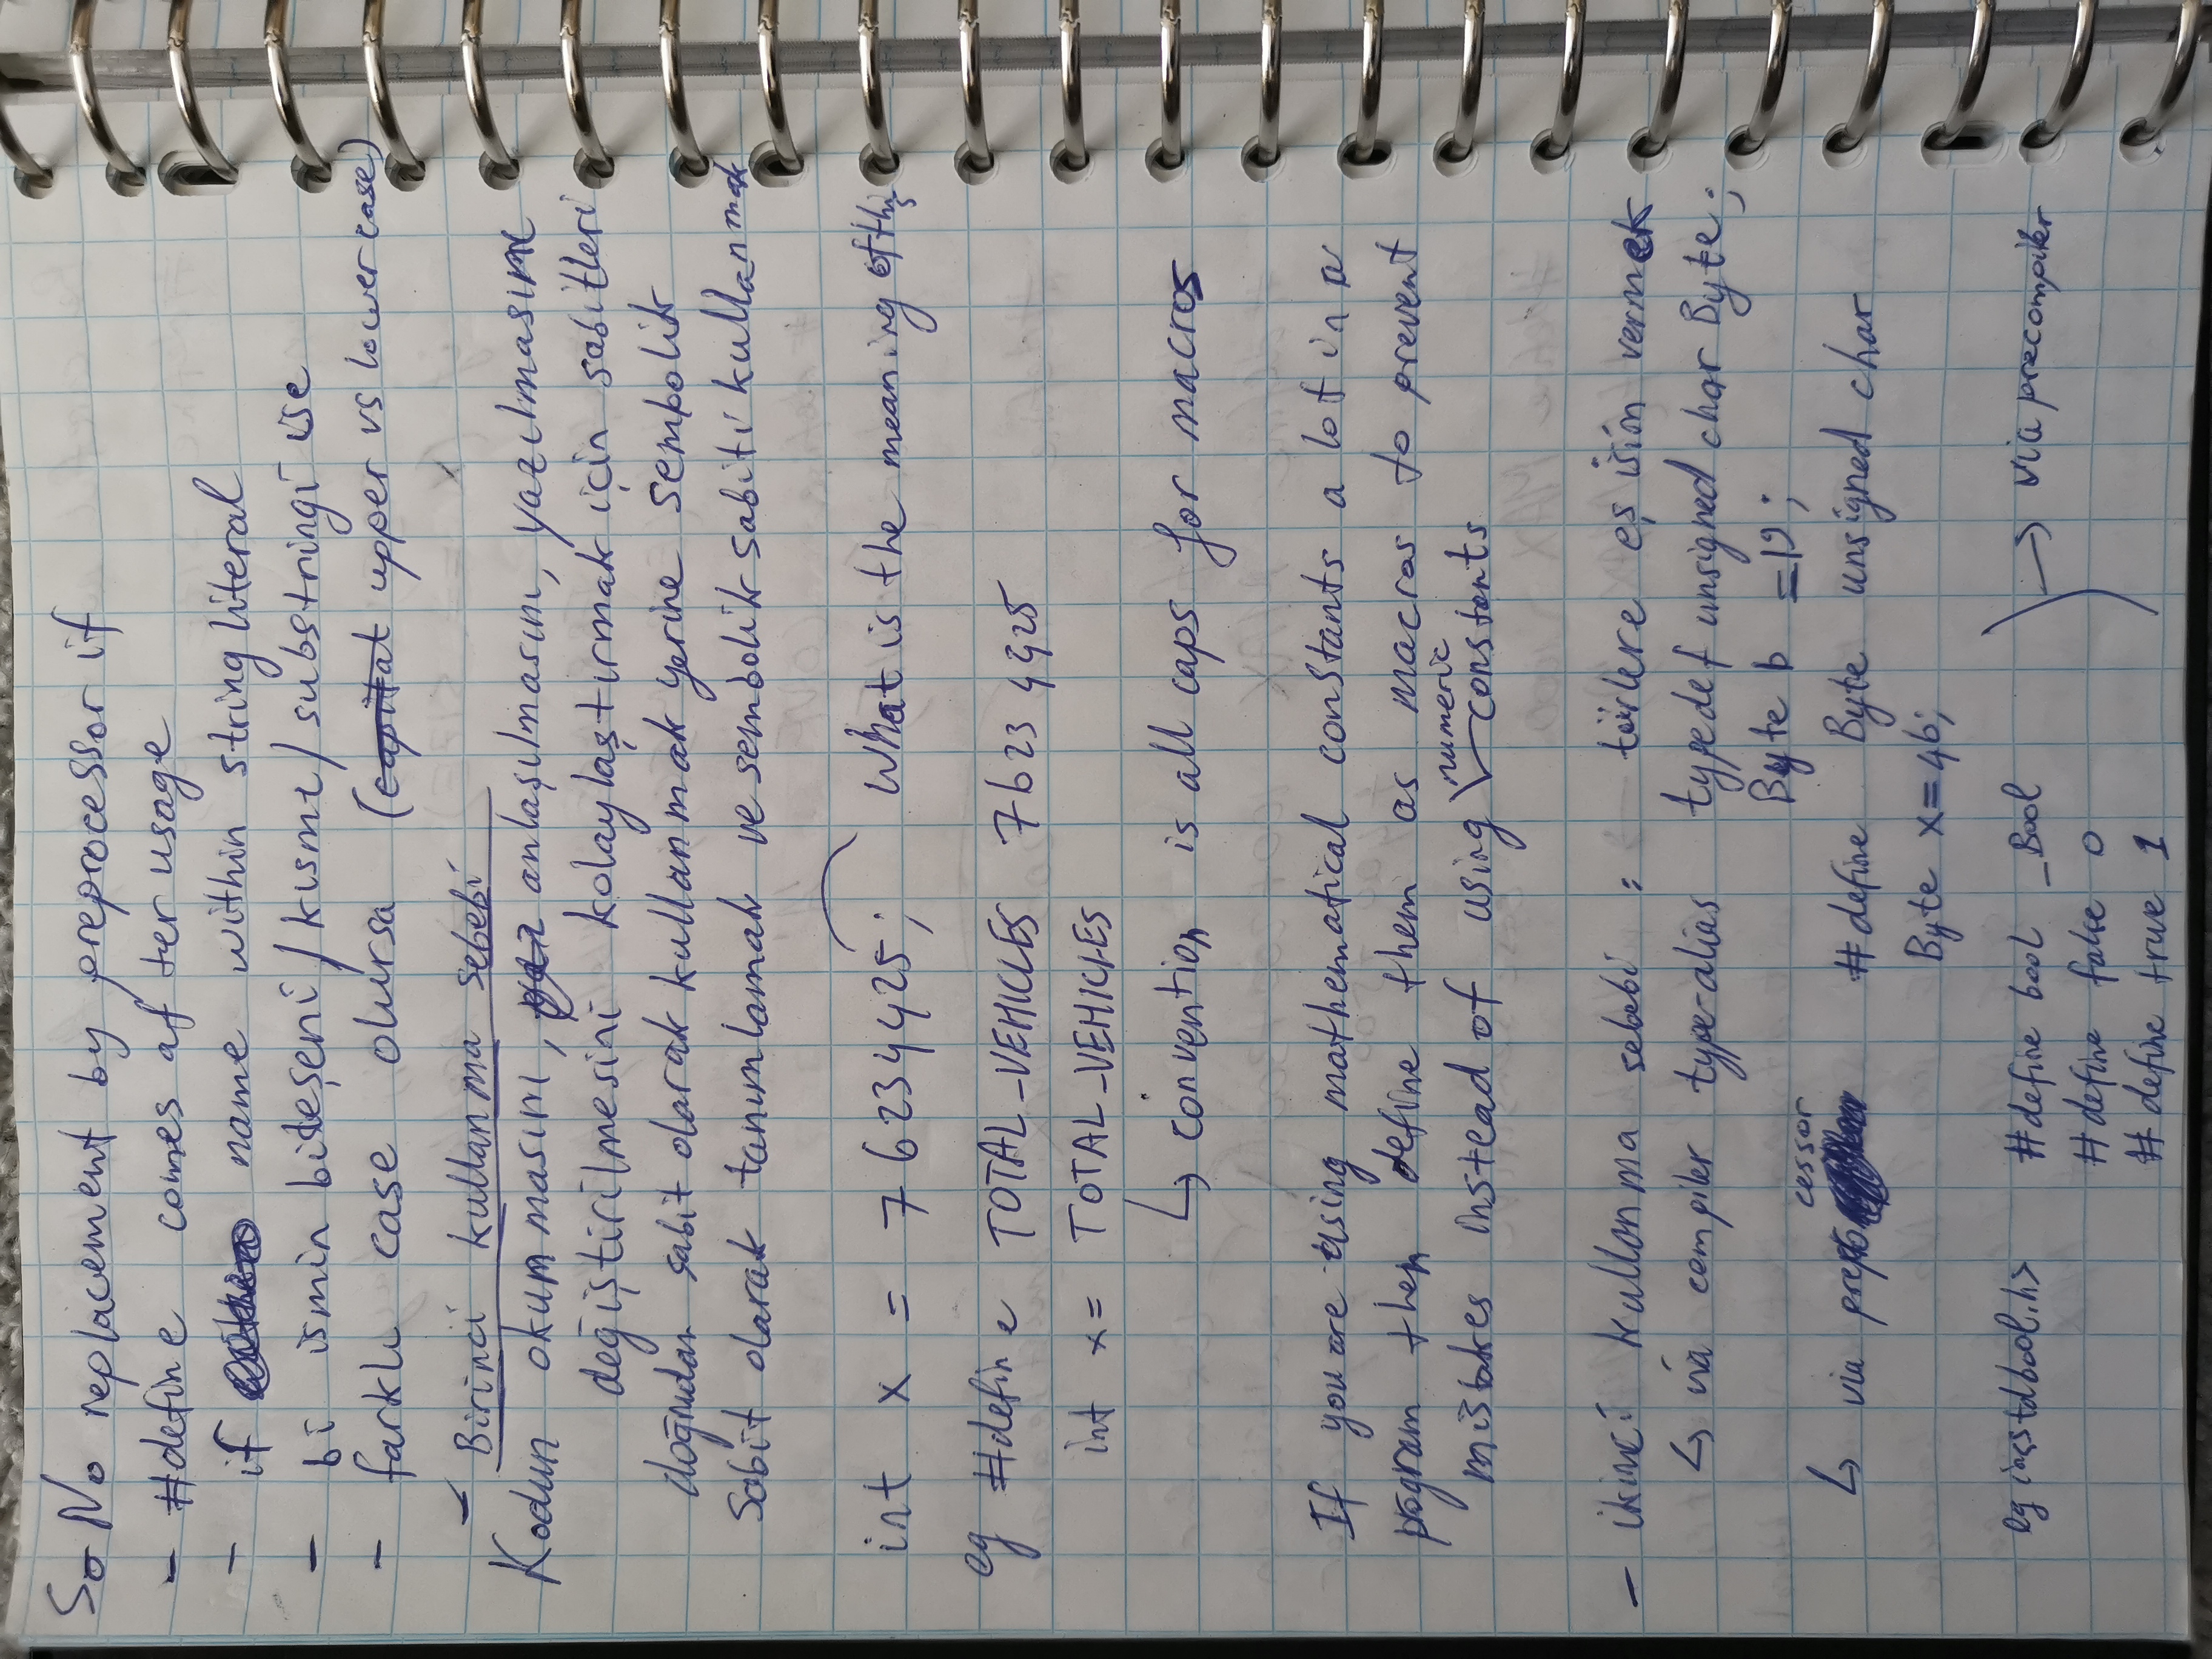 So No replacement by preprocessor if
- #define comes after usage
- if name within string literal
- bi ismin bileşeni/kısmı/substringi ise
- farklı case olursa (capital upper vs lower case)
- Birinci kullanma sebebi
Kodun okunmasını, anlaşılmasını, yazılmasını
değiştirilmesini kolaylaştırmak için sabitleri
doğrudan sabit olarak kullanmak yerine sembolik
Sabit olarak tanımlamak ve sembolik sabiti kullanmak
int x = 76234425; What is the meaning of this
eg #define TOTAL_VEHICLES 76234425
int x = TOTAL_VEHICLES
↳ convention is all caps for macros
If you are using mathematical constants a lot in a
program then define them as macros to prevent
mistakes instead of using numeric constants
- ikinci kullanma sebebi : türlere eş isim vermek
↳ via compiler type-alias typedef unsigned char Byte;
Byte b = 19;
↳ via preprocessor #define Byte unsigned char
Byte x = 46;
eg in <stdbool.h> #define bool _Bool → via precompiler
#define false 0
#define true 1